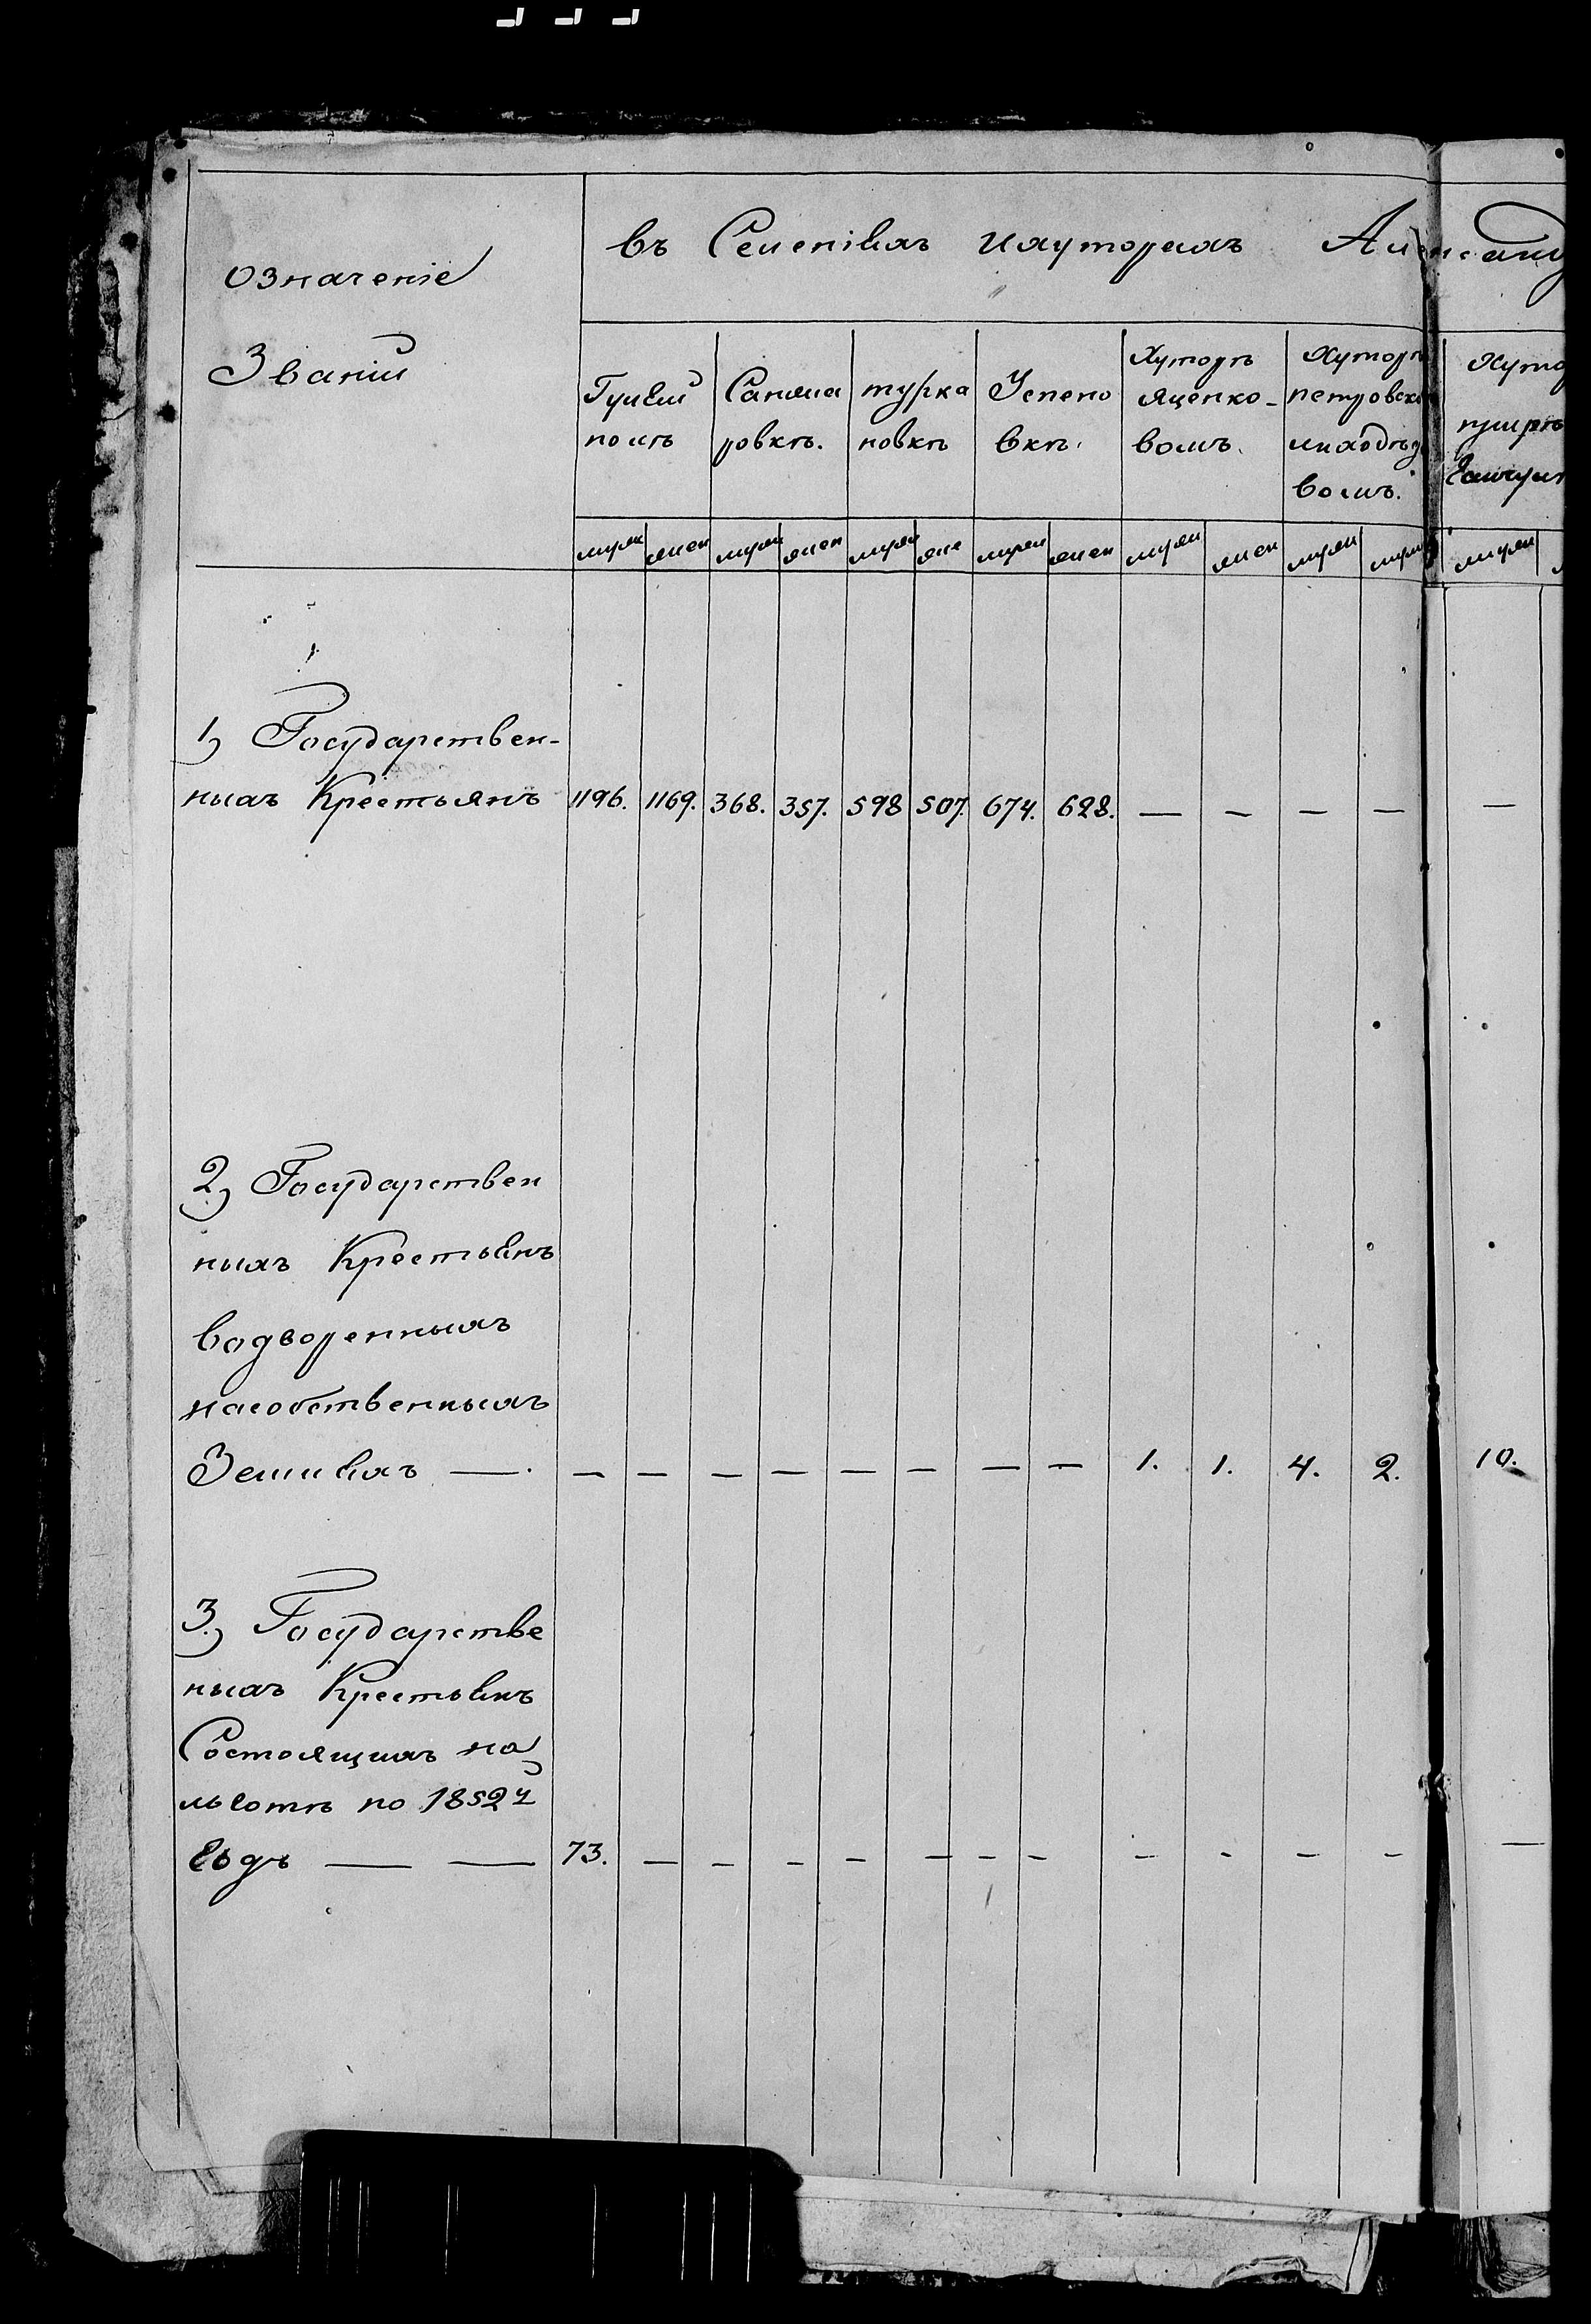 означеніе
Званій
въ Селеніяхъ ихуторахъ
Гуляй
полѣ
Санжа
ровкѣ.
турка
новкѣ
Успено
вкѣ.
Хуторѣ
Яценко-
вомъ.
Хуторѣ
петровско
вомъ.
муж жен муж жен муж же муж жен муж жен муж муж муж
1) Государствен-
ныхъ Крестьянъ 1196. 1169. 368. 357. 598 507. 674. 628. — — — — —
2) Государствен
ныхъ Крестьянъ
водворенныхъ
насобственныхъ
Земляхъ — — — — — — — — — 1. 1. 4. 2. 10.
3.) Государстве
ныхъ Крестьянъ
Состоящихъ на
льготѣ по 1852й
годъ — — 73. — — — — — — — — — — — —